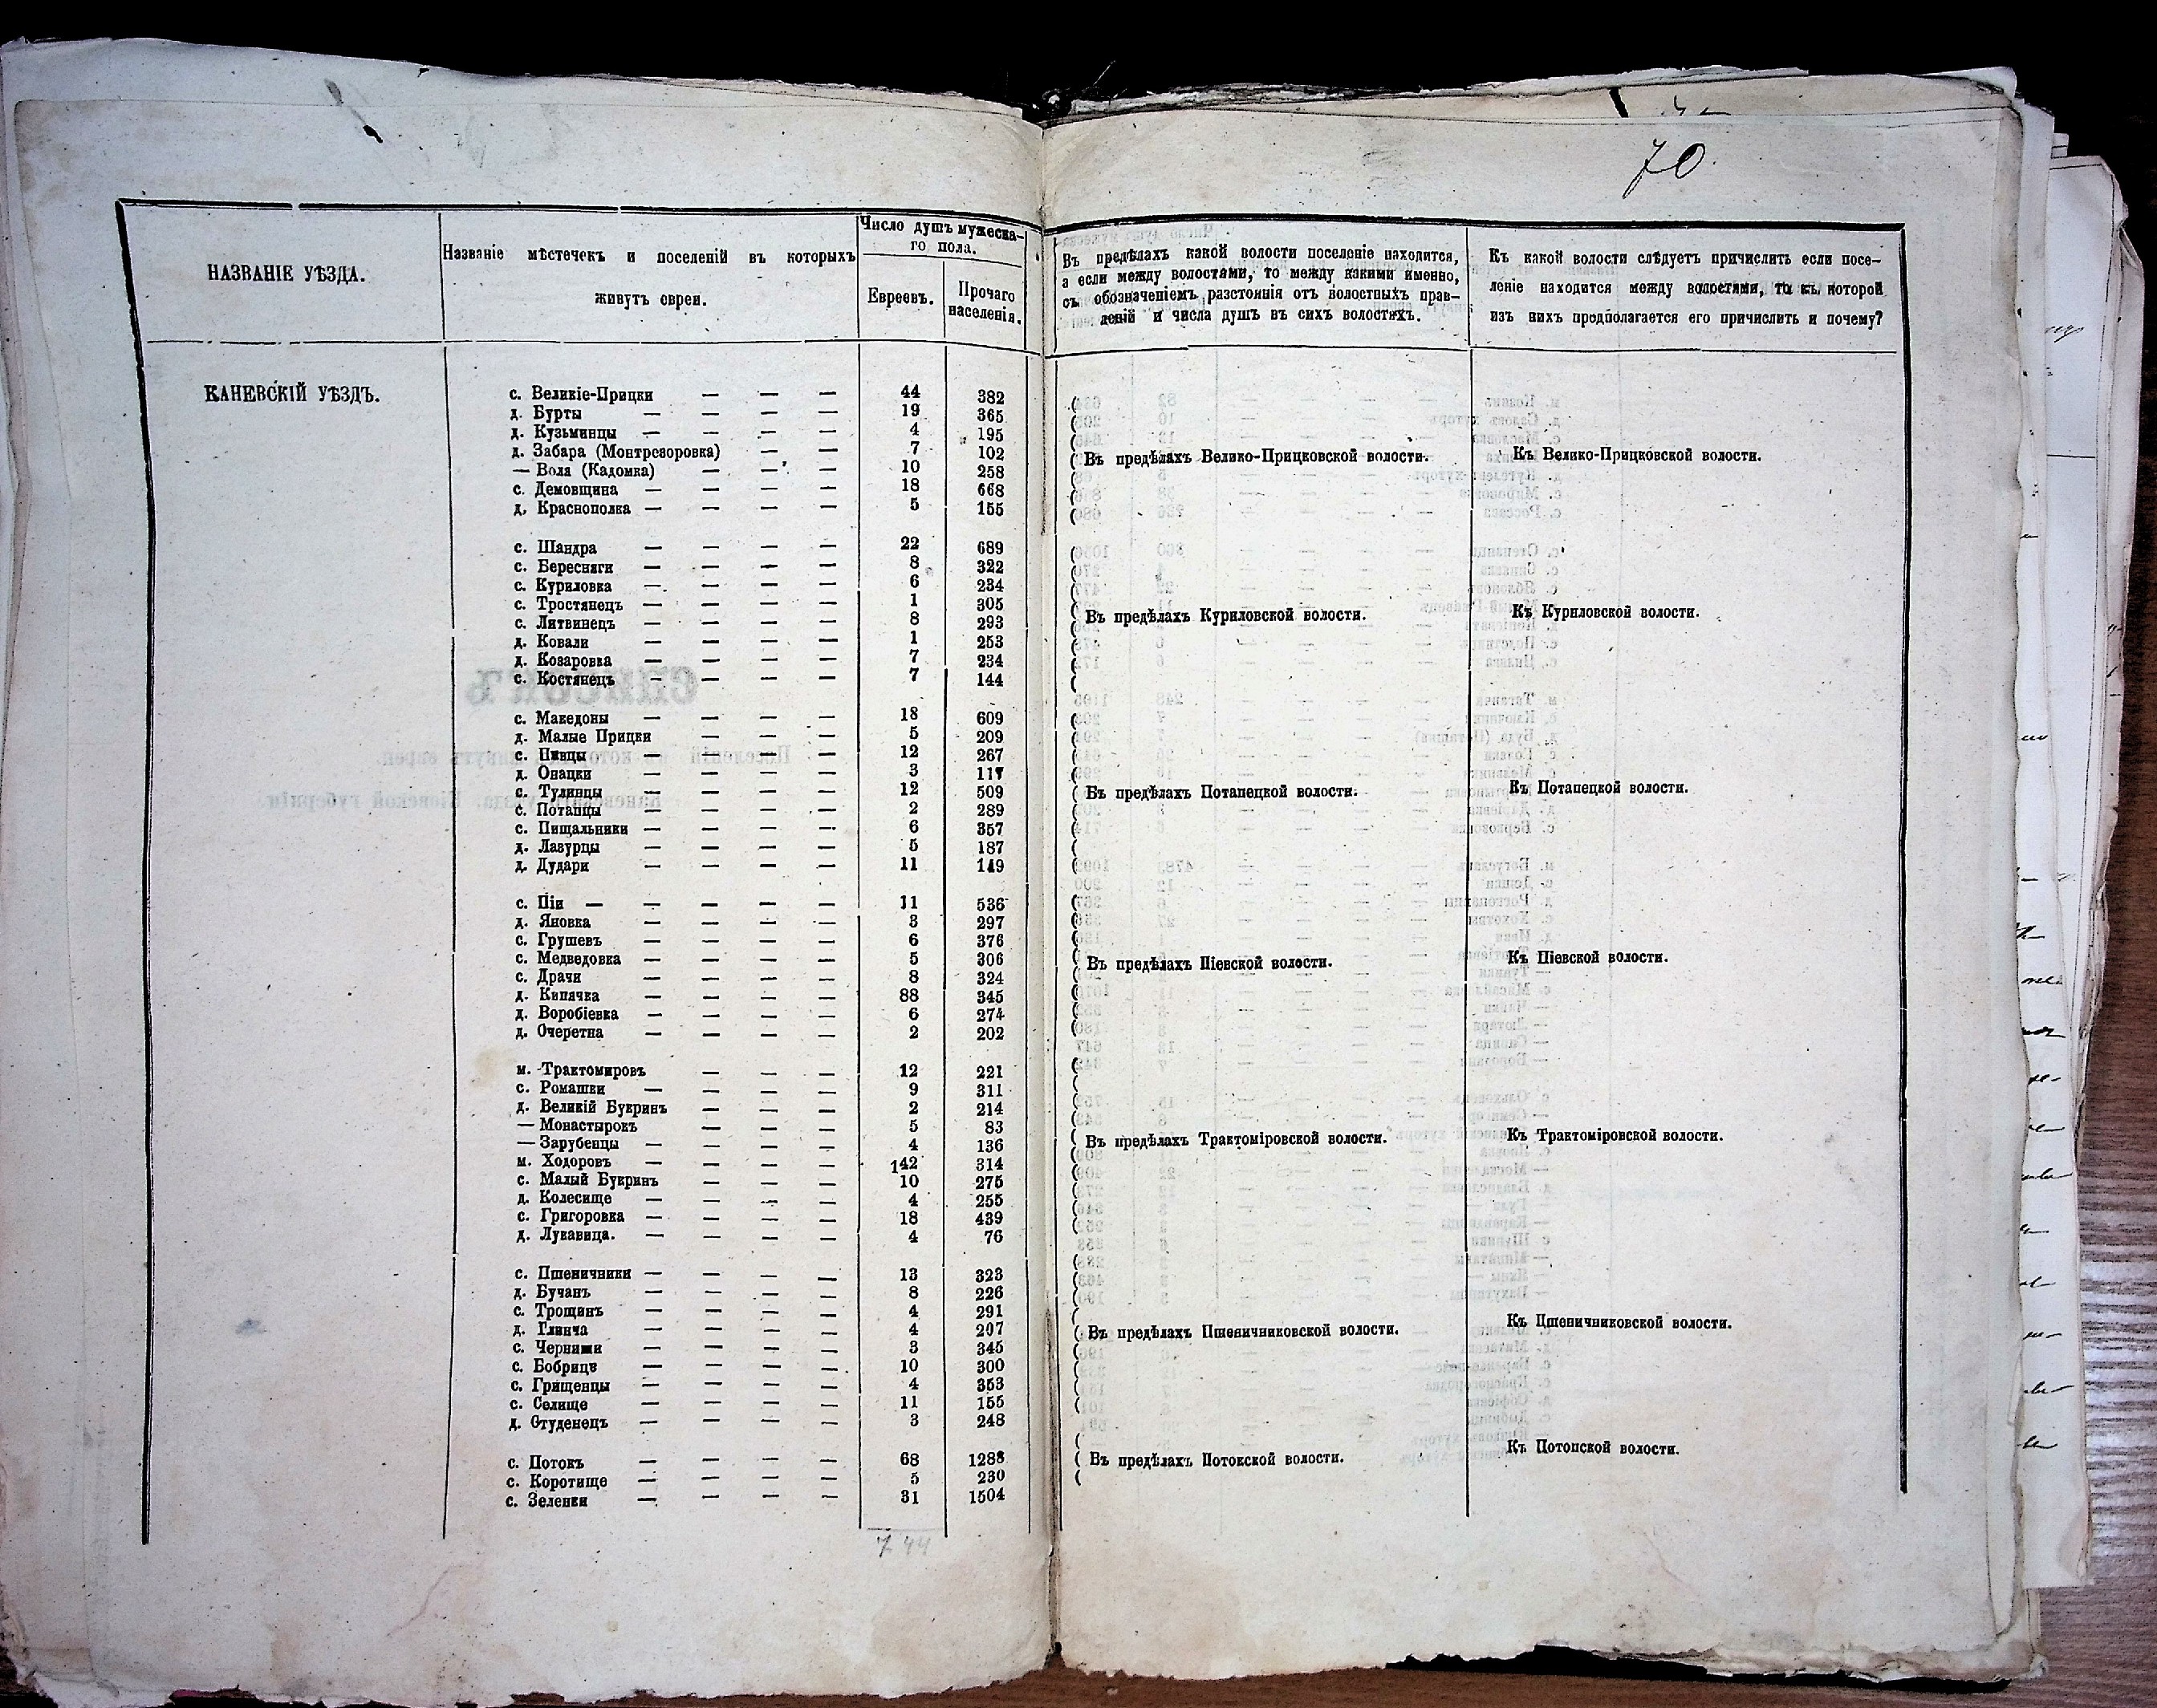 70
НАЗВАНІЕ УѢЗДА.
Названіе мѣстечекъ и поселеній въ которыхъ
живутъ евреи.
Число душъ мужеска-
го пола.
Евреевъ.
Прочаго
населенія.
Въ предѣлахъ какой волости поселеніе находится,
а если между волостями, то между какими именно,
съ обозначеніемъ разстоянія отъ волостныхъ прав-
леній и числа душъ въ сихъ волостяхъ.
Къ какой волости слѣдуетъ причислить если посе-
леніе находится между волостями, то къ которой
изъ нихъ предполагается его причислить и почему?
КАНЕВСКІЙ УѢЗДЪ.
с. Великіе-Прицки — — — 44 382
д. Бурты — — — — 19 365
д. Кузьминцы — — — — 4 195
д. Забара (Монтрезоровка) — — 7 102
— Воля (Кадомка) — — — 10 258
с. Демовщина — — — — 18 668
д. Краснополка — — — — 5 155
Въ предѣлахъ Велико-Прицковской волости.
Къ Велико-Прицковской волости.
с. Шандра — — — — 22 689
с. Березняги — — — — 8 322
с. Куриловка — — — — 6 234
с. Тростянецъ — — — — 1 305
с. Литвинецъ — — — — 8 293
д. Ковали — — — — 1 253
д. Козаровка — — — — 7 234
с. Костянецъ — — — — 7 144
Въ предѣлахъ Куриловской волости.
Къ Куриловской волости.
с. Македоны — — — — 18 609
д. Малые Прицки — — — 5 209
с. Пивцы — — — — 12 267
д. Онацки — — — — 3 117
с. Тулинцы — — — — 12 509
с. Потапцы — — — — 2 289
с. Пищальники — — — — 6 357
д. Лавурцы — — — — 5 187
д. Дудари — — — — 11 149
Въ предѣлахъ Потапецкой волости.
Къ Потапецкой волости.
с. Піи — — — — — 11 536
д. Яновка — — — — 3 297
с. Грушевъ — — — — 6 376
с. Медведовка — — — — 5 306
с. Драчи — — — — 8 324
д. Кипячка — — — — 88 345
д. Воробіевка — — — — 6 274
д. Очеретна — — — — 2 202
Въ предѣлахъ Піевской волости.
Къ Піевской волости.
м. Трактомировъ — — — 12 221
с. Ромашки — — — — 9 311
д. Великій Букринъ — — — 2 214
— Монастырокъ — — — 5 83
— Зарубенцы — — — — 4 136
м. Ходоровъ — — — — 142 314
с. Малый Букринъ — — — 10 275
д. Колесище — — — — 4 255
с. Григоровка — — — — 18 439
д. Лукавица. — — — — 4 76
Въ предѣлахъ Трактоміровской волости.
Къ Трактоміровской волости.
с. Пшеничники — — — — 13 323
д. Бучакъ — — — — 8 226
с. Трощинъ — — — — 4 291
д. Глинча — — — — 4 207
с. Черниши — — — — 3 345
с. Бобрица — — — — 10 300
с. Грищенцы — — — — 4 353
с. Селище — — — — 11 155
д. Студенецъ — — — — 3 248
Въ предѣлахъ Пшеничниковской волости.
Къ Пшеничниковской волости.
с. Потокъ — — — — 68 1288
с. Коротище — — — — 5 230
с. Зеленки — — — — 31 1504
Въ предѣлахъ Потокской волости.
Къ Потокской волости.
744